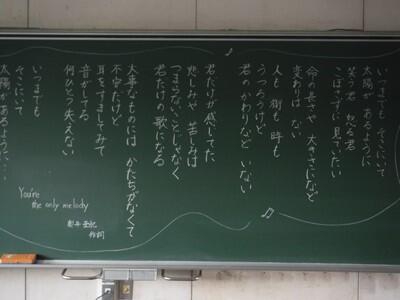 いつまでも そこにいて
太陽が あるように、
笑う君 怒る君
こぼさずに 見ていたい
命の長さや 大きさになど
変わりは ない
人も 街も 時も
うつろうけど
君のかわりなど いない
君だけが感じてた
悲しみや 苦しみは
つまらないとしゃなく
君だけの 歌になる
大事なものには かたちがなくて
不安だけど
耳をすましてみて
音がしてる
何ひとつ 失えない
いつまでも
そこにいて
太陽があるように…
You're
the only melody
作詞